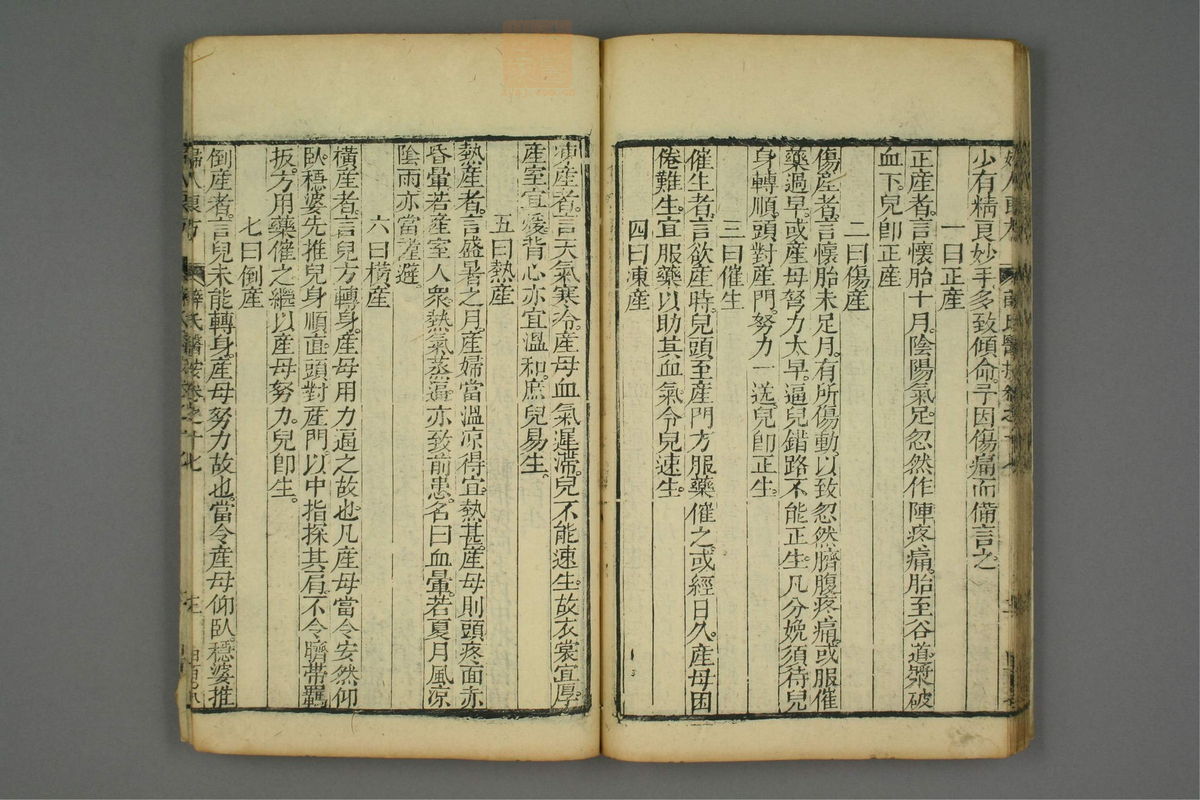 少有精良妙手多致傾命予因傷痛而備言之
一曰正産
正産者。言懷胎十月。陰陽氣足。忽然作陣疼痛。胎至谷道。漿破
血下。兒卽正産
二曰傷産
傷産者。言懷胎未足月。有所傷動。以致忽然臍腹疼痛。或服催
藥過早。或産母努力太早。逼兒錯路不能正生。凡分娩須待兒
身轉順。頭對産門。努力一送。兒卽正生。
三曰催生
催生者。言欲産時。兒頭至産門。方服藥催之。或經日久。産母困
倦難生。宜服藥以助其血氣。令兒速生。
四曰凍産
凍産者。言天氣寒冷。産母血氣遲滯。兒不能速生。故衣裳宜厚。
産室宜煖。背心亦宜溫和。庶兒易生。
五曰熱産
熱産者。言盛暑之月。産婦當溫涼得宜。熱甚産母則頭疼面赤
昏暈。若産室人衆。熱氣蒸逼。亦致前患。名曰血暈。若夏月風涼
陰雨亦當謹避
六曰橫産
橫産者。言兒方轉身。産母用力逼之故也。凡産母當令安然仰
臥。穩婆先推兒身順直。頭對産門。以中指探其肩。不令臍帶羈
扳。方用藥催之。繼以産母努力。兒卽生。
七曰倒産
倒産者。言兒未能轉身。産母努力故也。當令産母仰臥。穩婆推
婦人良方
薛氏醫按卷之十七